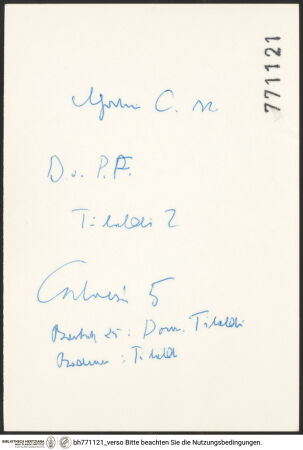 771121
C. 
D. u. P. F.
Tibaldi 2
5
Bartsch 25 : Dom. Tibaldi
: Tibaldi
BIBLIOTHECA HERTZIANA
bh771121_verso Bitte beachten Sie die Nutzungsbedingungen.